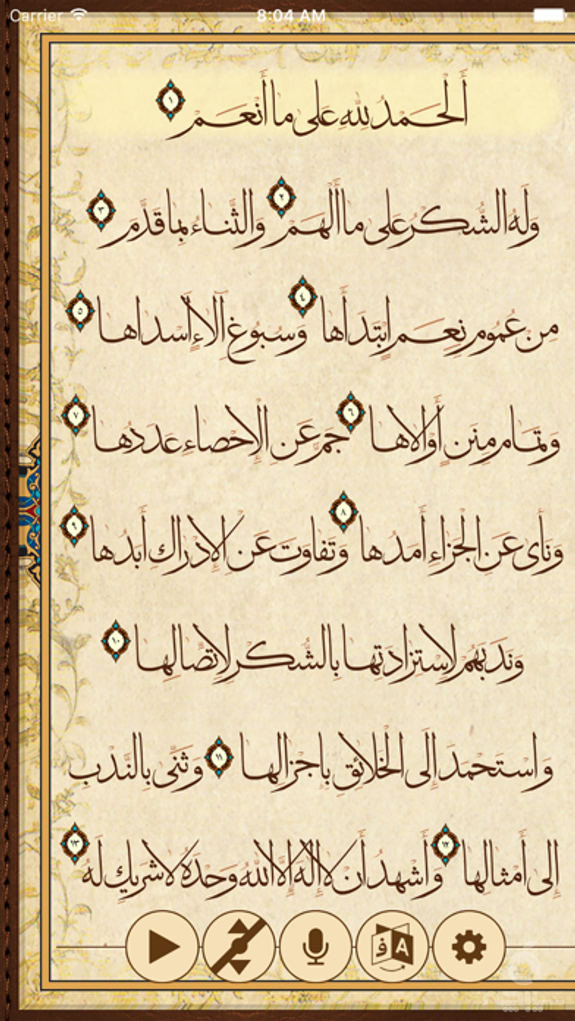 Carrier 8:04 AM
أَلْحَمْدُ لِلّٰهِ عَلىٰ ما أَنْعَمَ ١
وَلَهُ الشُّكْرُ عَلىٰ ما أَلْهَمَ ٢ وَالثَّناءُ بِما قَدَّمَ ٣
مِنْ عُمُومِ نِعَمٍ ابْتَدَأَها ٤ وَسُبُوغِ آلاءٍ أَسْداها ٥
وَتَمامِ مِنَنٍ أَوْلاها ٦ جَمَّ عَنِ الْإِحْصاءِ عَدَدُها ٧
وَنَأىٰ عَنِ الْجَزاءِ أَمَدُها ٨ وَتَفاوَتَ عَنِ الْإِدْراكِ أَبَدُها ٩
وَنَدَبَهُمْ لِاسْتِزادَتِها بِالشُّكْرِ لِاتِّصالِها ١٠
وَاسْتَحْمَدَ إِلَى الْخَلائِقِ بِإِجْزالِها ١١ وَثَنّىٰ بِالنَّدْبِ
إِلىٰ أَمْثالِها ١٢ وَأَشْهَدُ أَنْ لا إِلٰهَ إِلَّا اللّٰهُ وَحْدَهُ لا شَرِيكَ لَهُ ١٣
ف A